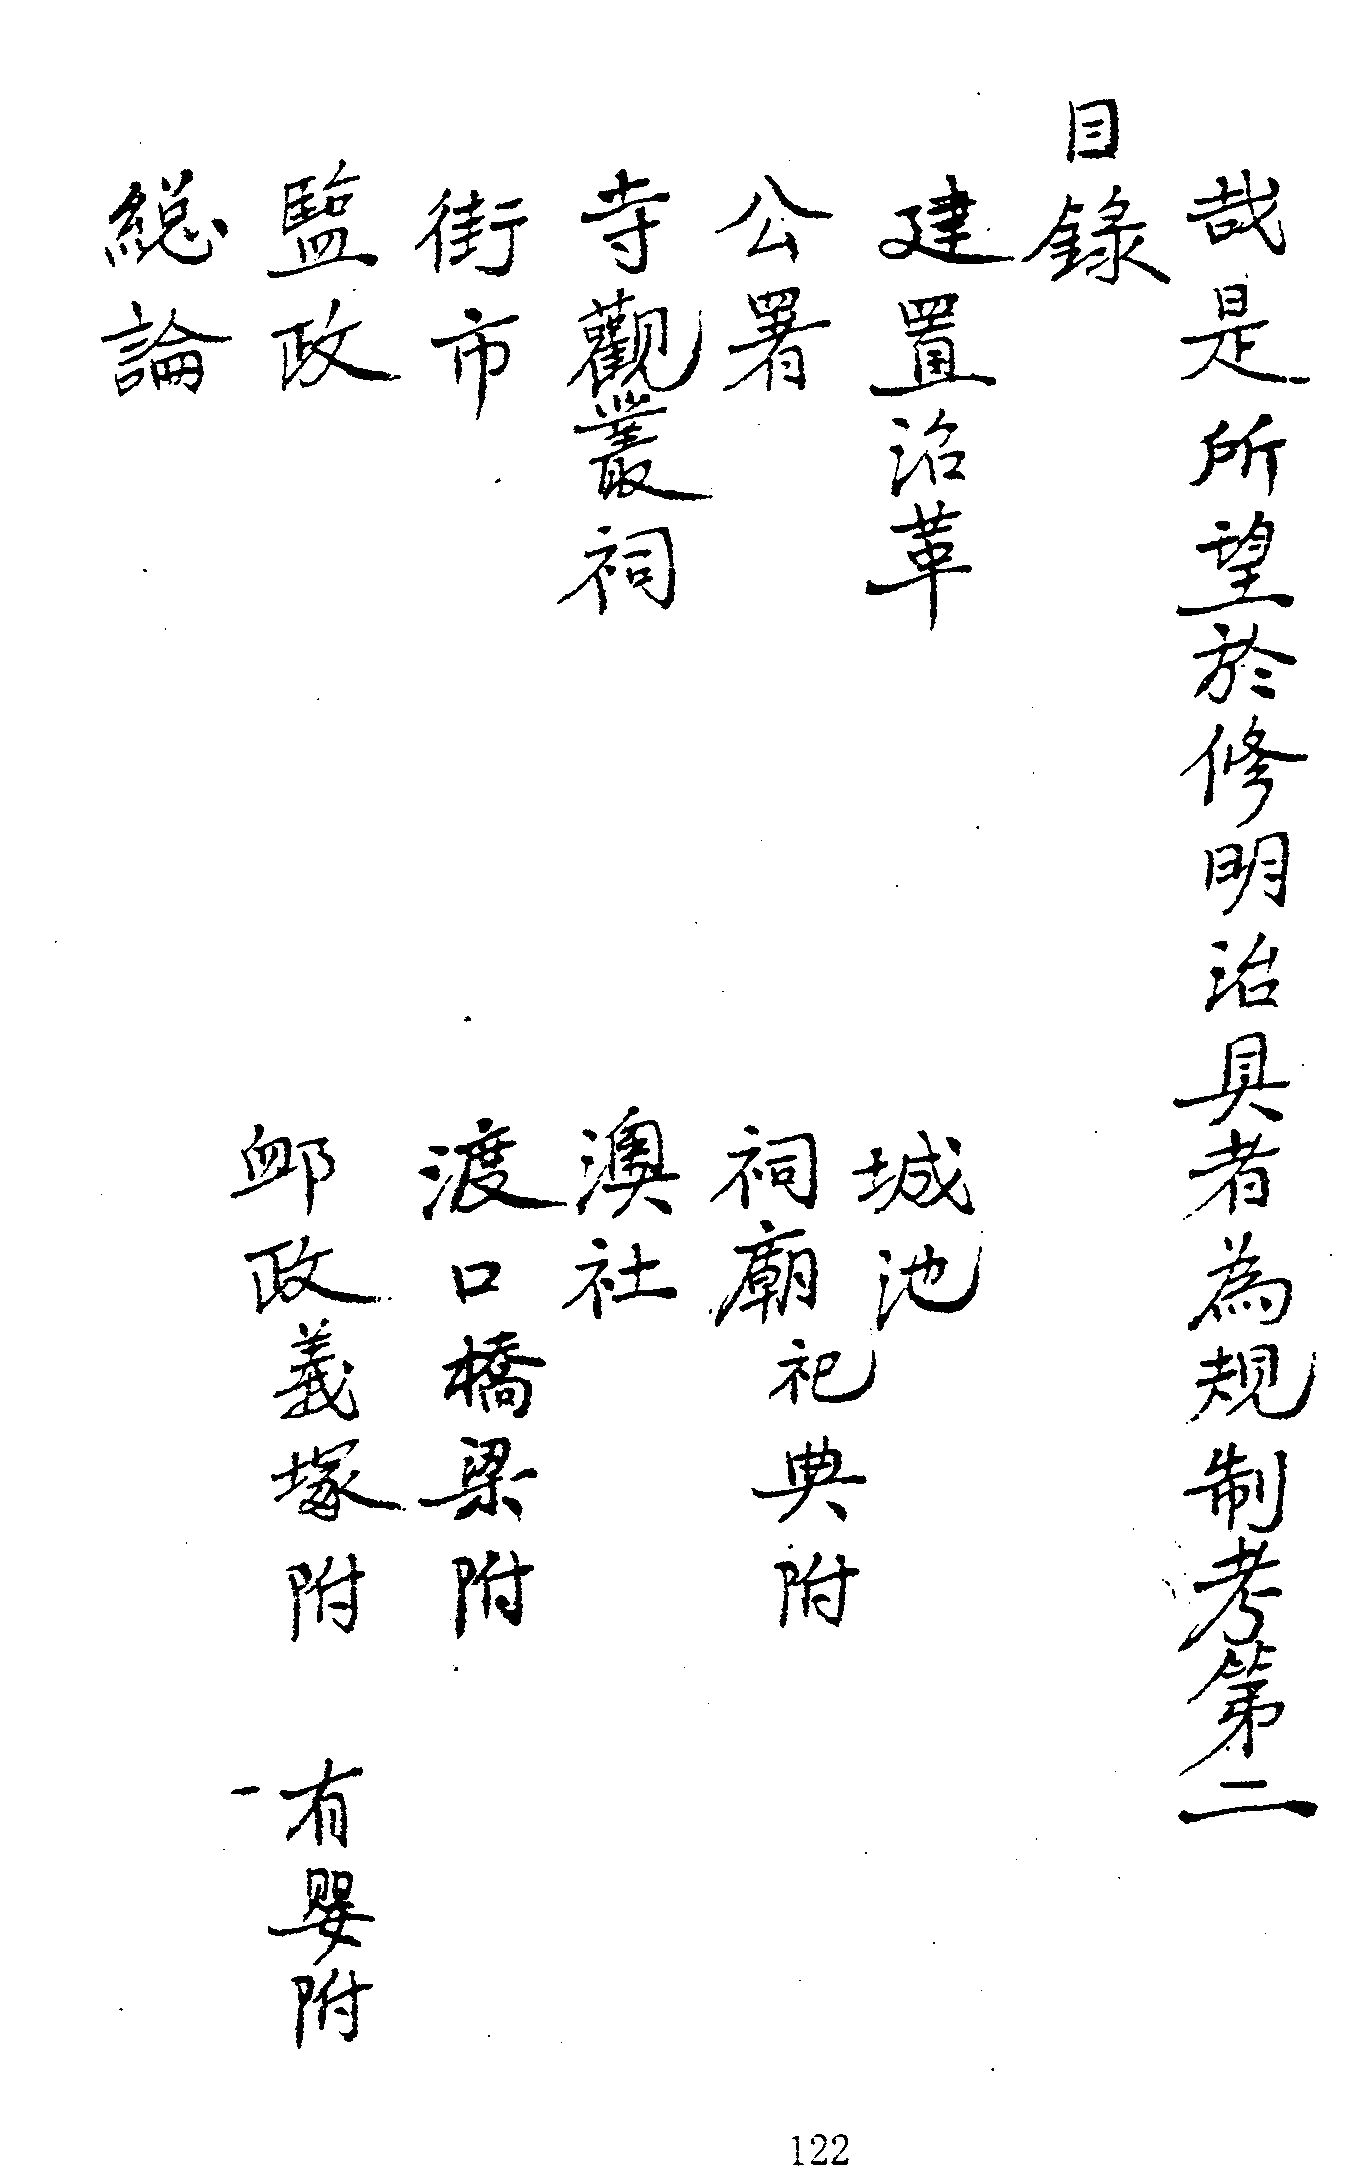 哉是所望於修明治具者為規制考第二
目錄
建置沿革
城池
公署
祠廟祀典附
寺觀叢祠
澳社
街市
渡口橋梁附
監政
卹政義塚附 有嬰附
総論
122